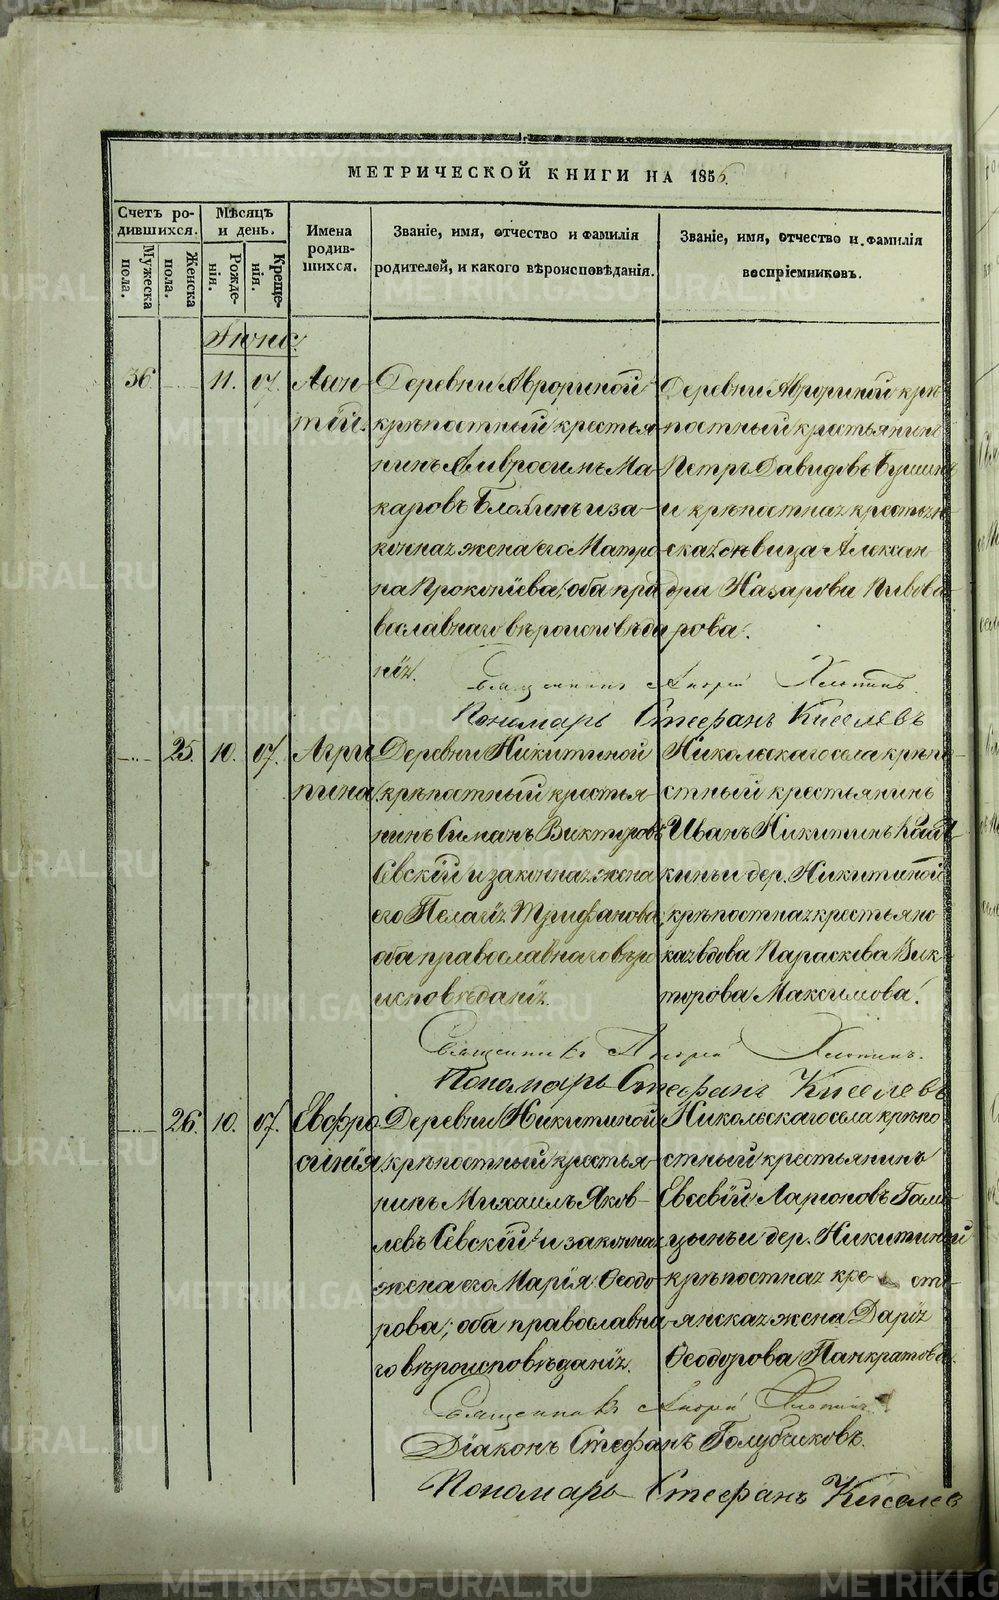 МЕТРИЧЕСКОЙ КНИГИ НА 1856.
Счетъ ро-
дившихся.
Мѣсяцъ
и день.
Имена
родив-
шихся.
Званіе, имя, отчество и фамилія
родителей, и какого вѣроисповѣданія.
Званіе, имя, отчество и фамилія
воспріемниковъ.
Мужеска
пола.
Женска
пола.
Рожде-
нія.
Креще-
нія.
36.
11.
Леон-
тій.
Деревни Аврориной
крѣпостный крестья-
нинъ Амвросимъ Ма-
каровъ и за-
конная жена его Матро-
на Прокопіева, оба пра-
вославнаго вѣроисповѣда-
нія.
Деревни Аврориной крѣ-
постный крестьянинъ
Петръ Давидовъ
и крѣпостная крестьян-
ская дѣвица Алексан-
дра Назарова Пивова-
рова.
Священникъ Андрей
Пономарь Стефанъ Киселевъ
25.
10.
Агри-
пина
Деревни Никитиной
крѣпостный крестья-
нинъ Симанъ Викторовъ
Севскій и законная жена
его Пелагія Трифанова,
оба православнаго вѣро-
исповѣданія.
Никольскаго села крѣпо-
стный крестьянинъ
Иванъ Никитинъ
и дер. Никитиной
крѣпостная крестьянс-
кая вдова Параскева Вик-
торова Максимова.
Священникъ Андрей
Пономарь Стефанъ Киселевъ
26.
10.
Евфро-
синія
Деревни Никитиной
крѣпостный крестья-
нинъ Михаилъ Яков-
левъ Севскій и законная
жена его Марія Ѳеодо-
рова; оба православна-
го вѣроисповѣданія.
Никольскаго села крѣпо-
стный крестьянинъ
Евсевій Ларіоновъ
и дер. Никитиной
крѣпостная кре-сть-
янская жена Дарія
Ѳеодорова Панкратова.
Священникъ Андрей
Діаконъ Стефанъ Голубчиковъ.
Пономарь Стефанъ Киселев
METRIKI.GASO-URAL.RU